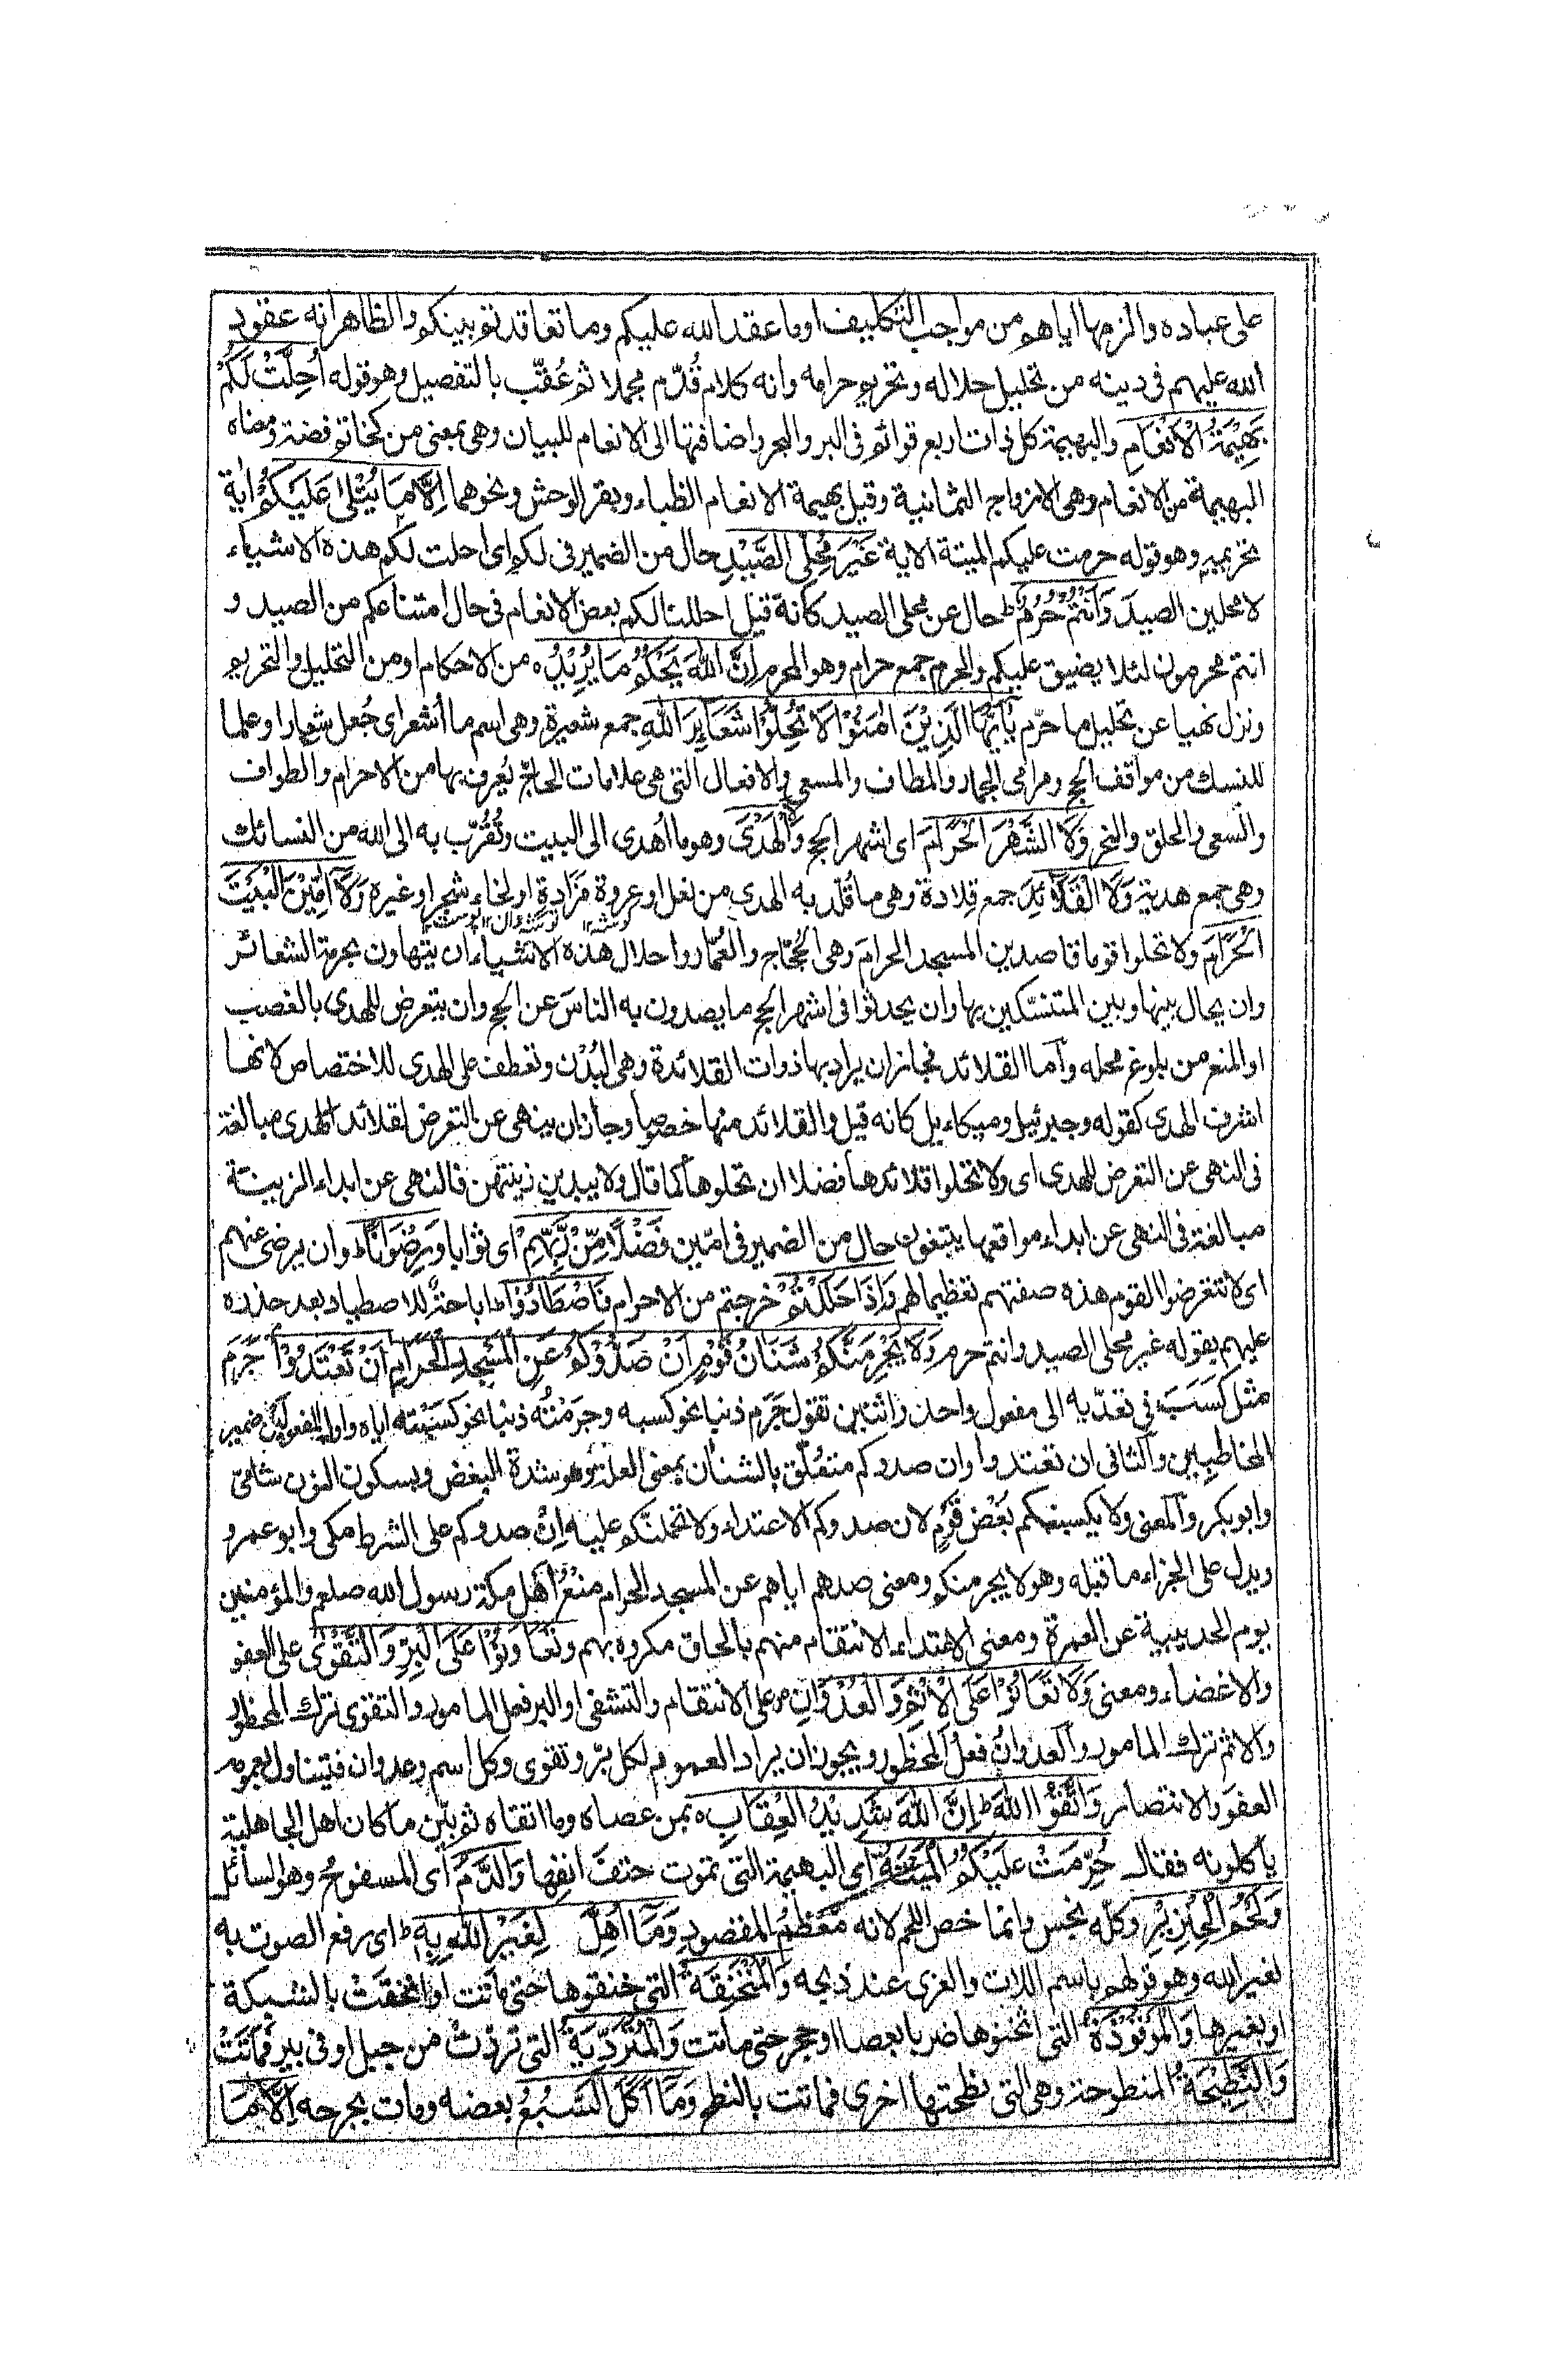 على عباده والزمها اياهم من مواجب التكليف او ما عقد الله عليكم وما تعاقدتم بينكم والظاهر انه عقود
الله عليهم فى دينه من تحليل حلاله وتحريم حرامه وانه كلام قُدّم مجملا ثم عُقّب بالتفصيل وهو قوله اُحِلَّتْ لَكُمْ
بَهِيْمَةُ الْاَنْعَامِ والبهيمة كل ذات اربع قوائم فى البر والبحر واضافتها الى الانعام للبيان وهى بمعنى من كخاتم فضة ومعناه
البهيمة من الانعام وهى الازواج الثمانية وقيل بهيمة الانعام الظباء وبقر الوحش ونحوهما اِلَّا مَا يُتْلٰى عَلَيْكُمْ اية
تحريمه وهو قوله حرمت عليكم الميتة الاية غَيْرَ مُحِلِّى الصَّيْدِ حال من الضمير فى لكم اى احلت لكم هذه الاشياء
لا محلين الصيد وَاَنْتُمْ حُرُمٌ ط حال عن محلى الصيد كانه قيل احللنا لكم بعض الانعام فى حال امتناعكم من الصيد و
انتم محرمون لئلا يضيق عليكم والحرم جمع حرام وهو المحرم اِنَّ اللهَ يَحْكُمُ مَا يُرِيْدُ ه من الاحكام او من التحليل والتحريم
ونزل نهيا عن تحليل ما حرّم يٰاَيُّهَا الَّذِيْنَ اٰمَنُوْا لَا تُحِلُّوْا شَعَآئِرَ اللهِ جمع شعيرة وهى اسم ما اُشعر اى جُعل شعارا وعلما
للنسك من مواقف الحج ومرامى الجمار والمطاف والمسعى والافعال التى هى علامات الحاج يُعرف بها من الاحرام والطواف
والسعى والحلق والنحر وَلَا الشَّهْرَ الْحَرَامَ اى اشهر الحج وَلَا الْهَدْىَ وهو ما اُهدى الى البيت وتُقُرّب به الى الله من النسائك
وهى جمع هدية وَلَا الْقَلَآئِدَ جمع قِلادة وهى ما قُلّد به الهدى من نعل او عروة مَزَادة او لحاء شجر او غيره وَلَآ اٰمِّيْنَ الْبَيْتَ
الْحَرَامَ ولا تحلوا قوما قاصدين المسجد الحرام وهى الحُجّاج والعُمّار واحلال هذه الاشياء ان يتهاون بحرمة الشعائر
وان يحال بينها وبين المتنسّكين بها وان يحدثوا فى اشهر الحج ما يصدون به الناس عن الحج وان يتعرض للهدى بالغصب
او المنع من بلوغ محله وأما القلائد فجاز ان يراد بها ذوات القلائدة وهى البُدْن وتعطف على الهدى للاختصاص لانها
اشرف الهدى كقوله وجبرئيل وميكاءيل كانه قيل والقلائد منها خصوصا وجاز ان ينهى عن التعرض لقلائد الهدى مبالغة
فى النهى عن التعرض للهدى اى ولا تحلوا قلائدها فضلا ان تحلوها كما قال ولا يبدين زينتهن فالنهى عن ابداء الزينة
مبالغة فى النهى عن ابداء مواقعها يبتغون حال من الضمير فى امّين فَضْلًا مِّنْ رَّبِّهِمْ اى ثوابا وَرِضْوَانًا ط وان يرضى عنهم
اى لا تتعرضوا لقوم هذه صفتهم تعظيما لهم وَاِذَا حَلَلْتُمْ خرجتم من الاحرام فَاصْطَادُوْا ط اباحة للاصطياد بعد حذره
عليهم بقوله غير محلى الصيد وانتم حرم وَلَا يَجْرِمَنَّكُمْ شَنَاٰنُ قَوْمٍ اَنْ صَدُّوْكُمْ عَنِ الْمَسْجِدِ الْحَرَامِ اَنْ تَعْتَدُوْا جَرَم
مثل كَسَبَ فى تعدّيه الى مفعول واحد واثنين تقول جَرَم ذنبا نحو كسبه وجرمْتُه ذنبا نحو كسَبْته اياه واول المفعولين ضمير
المخاطبين والثانى ان تعتدوا وان صدوكم متعلّق بالشنأن بمعنى العلة وهو شدة البغض وبسكون النون شامى
وابو بكر والمعنى ولا يكسبنكم بُغْض قَوْمٍ لان صدوكم الاعتداء ولا تحملنّكم عليه اِنْ صدوكم على الشرط مكى وابو عمرو
ويدل على الجزاء ما قبله وهو لا يجرمنكم ومعنى صدهم اياهم عن المسجد الحرام منْعُ اَهْل مكة رسول الله صلعم والمؤمنين
يوم الحديبية عن العمرة ومعنى الاعتداء الانتقام منهم بالحاق مكروه بهم وَتَعَاوَنُوْا عَلَى الْبِرِّ وَالتَّقْوٰى على العفو
والاغضاء ومعنى وَلَا تَعَاوَنُوْا عَلَى الْاِثْمِ وَالْعُدْوَانِ على الانتقام والتشفى او البر فعل المامور والتقوى ترك المحظور
والاثم ترك المامور والعدوانُ فعلُ المحظور ويجوز ان يراد العموم لكل برّ وتقوى وكل اسم وعدوان فتيناول بعمومه
العفو والانتصار وَاتَّقُوا اللهَ ط اِنَّ اللهَ شَدِيْدُ الْعِقَابِ ه بمن عصاه وما اتقاه ثم بيّن ما كان اهل الجاهلية
ياكلونه فقال حُرِّمَتْ عَلَيْكُمُ الْمَيْتَةُ اى البهيمة التى تموت حتفَ انفِها وَالدَّمُ اى المسفوحُ وهو السائل
وَلَحْمُ الْخِنْزِيْرِ وكلّه نجس وانما خص اللحم لانه مُعْظَمُ المقصودِ وَمَآ اُهِلَّ لِغَيْرِ اللهِ بِهٖ ط اى رفع الصوت به
لغير الله وهو قولهم باسم اللات والعزى عند ذبحه وَالْمُنْخَنِقَةُ التى خنقوها حتى ماتت او انخنقَتْ بالشبكة
او بغيرها وَالْمَوْقُوْذَةُ التى اثخنوها ضربا بعصا او حجر حتى ماتت وَالْمُتَرَدِّيَةُ التى تردّتْ من جبل او فى بير فماتَتْ
وَالنَّطِيْحَةُ المنطوحة وهى التى نطحتها اخرى فماتت بالنطح وَمَآ اَكَلَ السَّبُعُ بعضه ومات بجرحه اِلَّا مَا